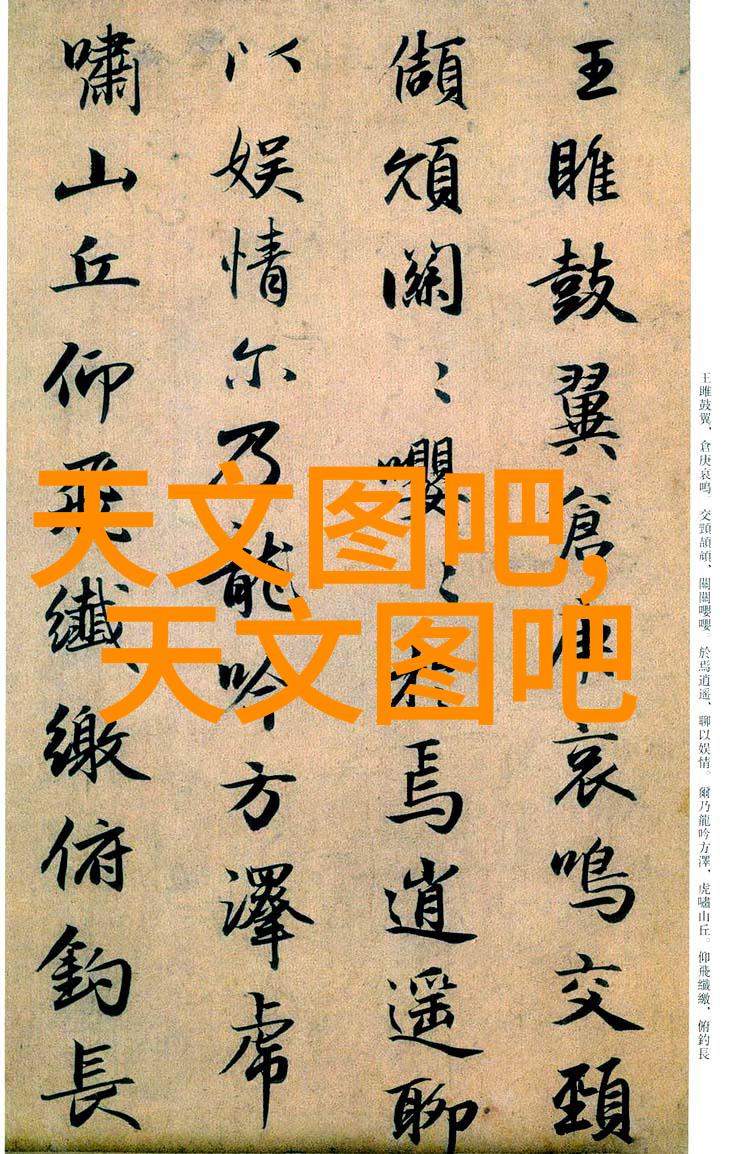 王雎鼓翼倉庚哀鳴交頸
頡頏關〻嚶〻於焉逍遥聊
以娱情尔乃龍吟方澤虎
嘯山丘仰飛纖繳俯釣長
天文图吧,
天文图吧
王雎鼓翼、倉庚哀鳴。交頸頡頏、關關嚶嚶。於焉逍遥、聊以娱情。爾乃龍吟方澤、虎嘯山丘。仰飛纖繳、俯釣長